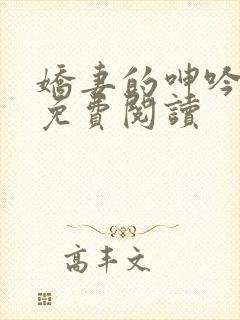 嬌妻的呻吟
免費閱讀
高丰文